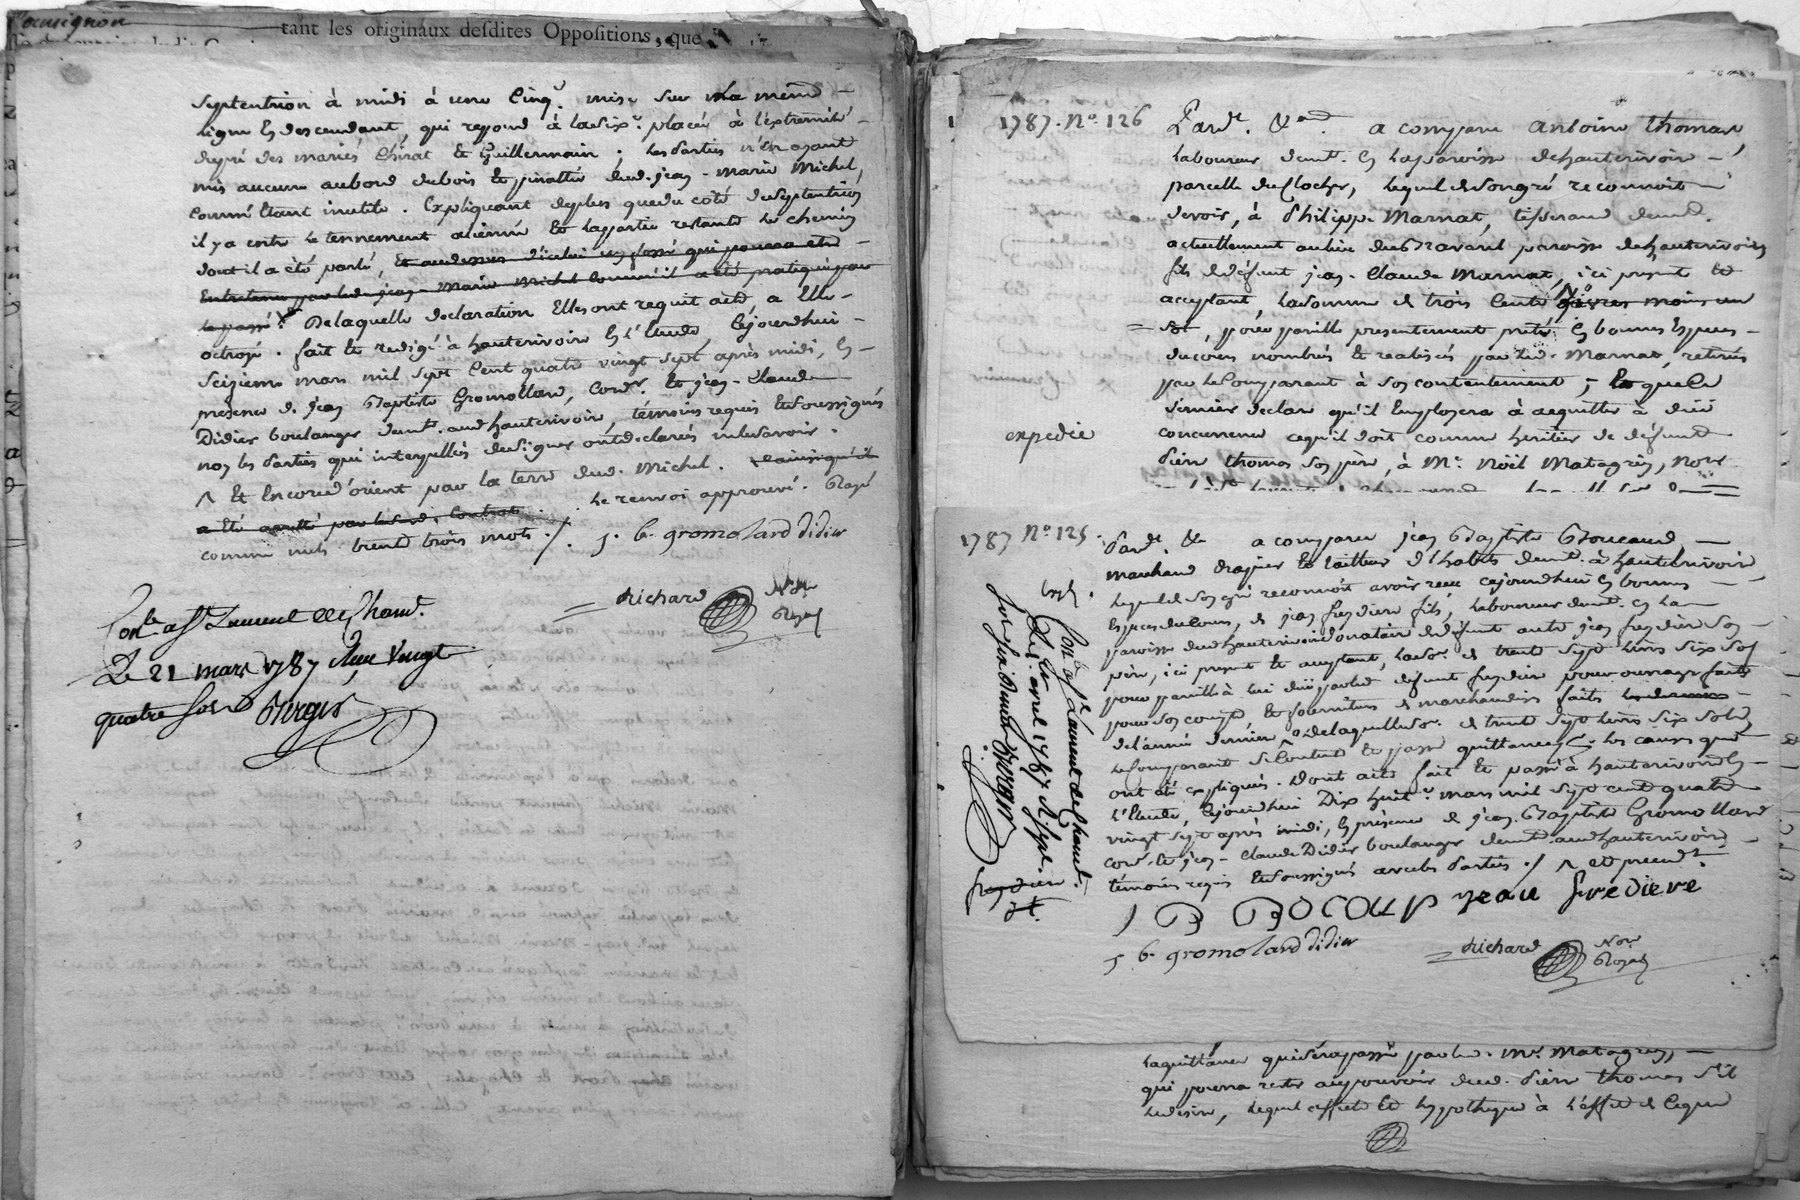 tant les originaux desdites Oppositions, que
septentrion à midi à une Cinq.e mise sur la même
ligne Et descendant, qui repond à la Six.e placée à l'extremité
du pré des mariés Chirat Et Guillermain. les parties n'En ayant
mis aucune au bord du bois Et pinattée dud. jean-Marie Michel,
Comme Etant inutile. Expliquant de plus que du côté du septentrion
il y a entre le tennement aliéné Et la partie restante le chemin
dont il a été parlé, Et au dessus d'icelui un fossé qui pourra etre
Entretenu par led. jean-Marie Michel Comme il a été pratiqué par
le passé. De laquelle declaration Elles ont requit acte, a Elles
octroyé. fait Et redigé à hauterivoire En l'Etude, Cejourdhui
Seizieme mars mil sept Cent quatre vingt sept après midi, En
presence de jean Baptiste Gromollard, Cord.r Et jean-Claude
Didier boulanger demt. aud. hauterivoire, témoins requis Et Soussignés
non les parties qui interpellées de signer ont declarés ne le savoir.
Et Encore d'orient par la terre dud. Michel.
le renvoi approuvé. Rayé
comme nuls trente trois mots./.
j. b. gromolard didier
Richard
No.re
Royal
Con.le a St Laurent de Cham.t
Le 21 mars 1787 Reçu Vingt
quatre sols Berger
1787. No. 126
Pardt. &a. a comparu antoine thomas,
laboureur demt. En la paroisse de hauterivoire
parcelle du Clocher, lequel de Son gré reconnoit
devoir, à Philippe Marnat, tisserand demt.
actuellement au lieu du Bravard paroisse de hauterivoire
fils de défunt jean-Claude Marnat, ici present Et
acceptant, la Somme de trois Cents livres moins un
sol, pour pareille presentement prêtée En bonnes Especes
du cours nombrées Et realisées par led. Marnat, retirées
par le Comparant à Son contentement; lequel
dernier declare qu'il Employera à acquitter à düe
expedié
concurrence ce qu'il doit comme heritier de défunt
Pierre thomas Son père, à Mr. Noël Matagrin, No.re
1787 No. 125.
Pardt. &a a comparu jean Baptiste Boucaud
marchand drapier Et tailleur d'habits demt. à hauterivoire,
lequel de Son gré reconnoit avoir reçu cejourdhui En bonnes
Especes du Cours, de jean freydiere fils, laboureur demt. En la
paroisse dud. hauterivoire donataire de défunt autre jean freydiere Son
père, ici present Et acceptant, la So.e de trente Sept livres Six Sols
pour pareille à lui düe par led. défunt freydiere pour ouvrages faits
pour Son compte, Et fournitures de marchandises faits
de l'année derniere de laquelle So.e de trente Sept livres Six Sols
le Comparant Se Contente Et passe quittance. les causes que
ont été Expliquées. Dont acte fait Et passé à hauterivoire En
l'Etude, Cejourdhui Dix huit.e mars mil Sept cent quatre
vingt Sept après midi, En présence de jean Baptiste Gromollard
Cord.r Et jean-Claude Didier boulanger demt. aud. hauterivoire
témoins requis Et Soussignés avec les parties./.
J B BOCOUD jean fredière
j. b. gromolard didier
Richard
No.re
Royal
Con.le a St Laurent de Cham.t
Le 1er avril 1787
la quittance qui Sera passée par led. Mr. Matagrin,
qui pourra rester au pouvoir dud. Pierre thomas S'il
le desire, lequel affecte Et hypotheque à l'effet de Ceque